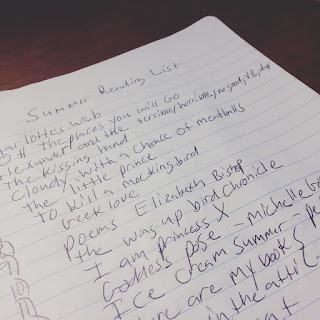 Summer Reading List
arlottes web
The places you will Go
Alexander and the terrible/horrible/no good, VB, day
The Kissing hand
Cloudy with a chance of meatballs
the little prince
to kill a mockingbird
Geek love
Poems Elizabeth Bishop
the wing up bird chronicle
I am princess X
Goddess pose - michelle
Ice cream summer -
ere are my books
in the attic